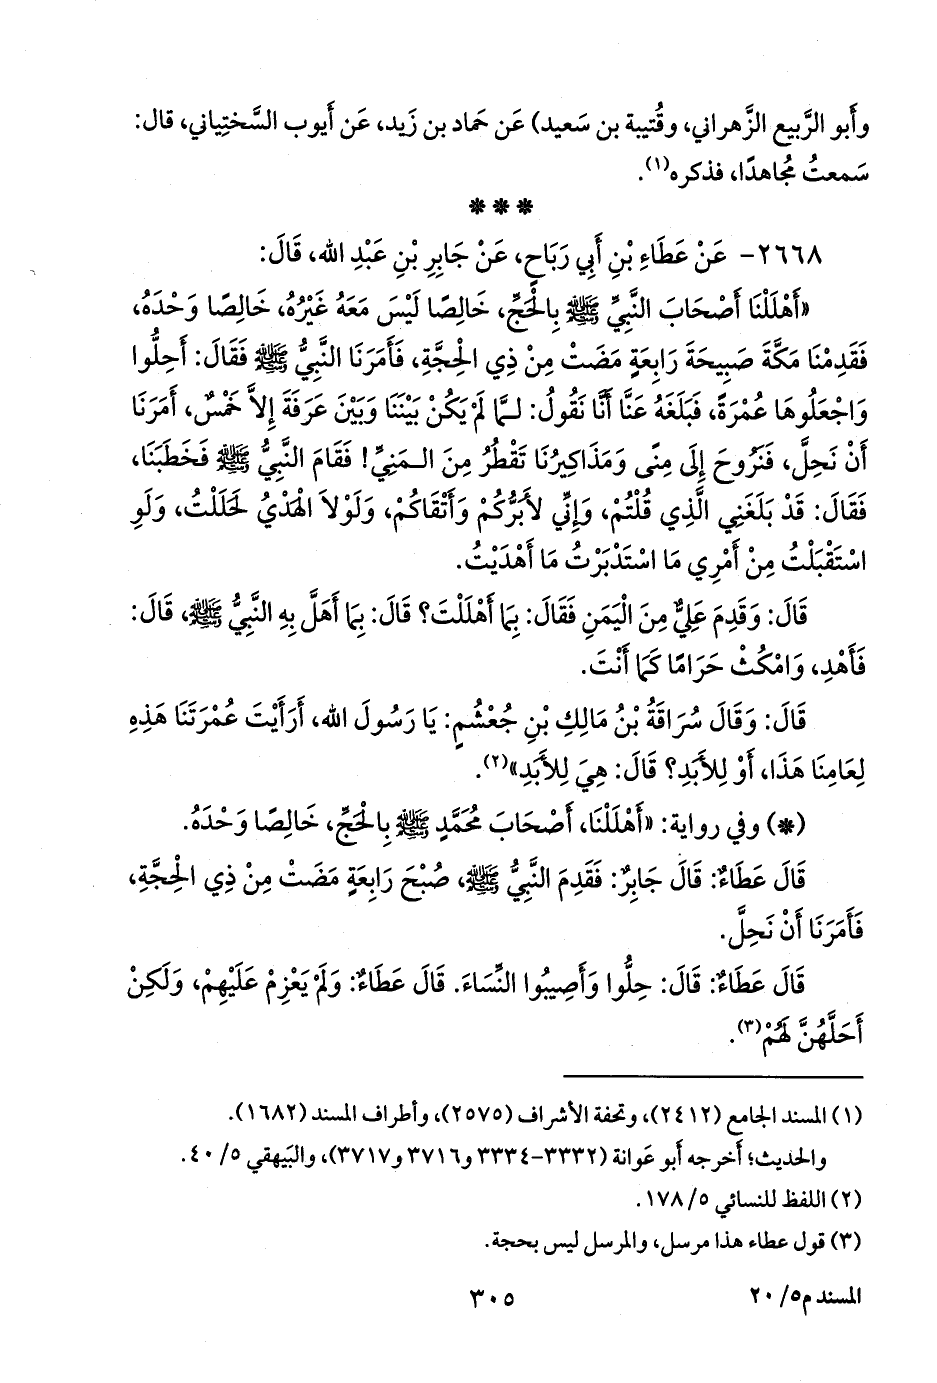 وأَبو الرَّبيع الزَّهراني، وقُتيبة بن سَعيد) عَن حَماد بن زَيد، عَن أَيوب السَّختِياني، قال:
سَمعتُ مُجاهدًا، فذكره(١).
* * *
٢٦٦٨- عَنْ عَطَاءِ بْنِ أَبِي رَبَاحٍ، عَنْ جَابِرِ بْنِ عَبْدِ الله، قَالَ:
«أَهْلَلْنَا أَصْحَابَ النَّبِيِّ ﷺ بِالْحَجِّ، خَالِصًا لَيْسَ مَعَهُ غَيْرُهُ، خَالِصًا وَحْدَهُ،
فَقَدِمْنَا مَكَّةَ صَبِيحَةَ رَابِعَةٍ مَضَتْ مِنْ ذِي الْحِجَّةِ، فَأَمَرَنَا النَّبِيُّ ﷺ فَقَالَ: أَحِلُّوا
وَاجْعَلُوهَا عُمْرَةً، فَبَلَغَهُ عَنَّا أَنَّا نَقُولُ: لَمَّا لَمْ يَكُنْ بَيْنَنَا وَبَيْنَ عَرَفَةَ إِلاَّ خَمْسٌ، أَمَرَنَا
أَنْ نَحِلَّ، فَنَرُوحَ إِلَى مِنًى وَمَذَاكِيرُنَا تَقْطُرُ مِنَ الـمَنِيِّ! فَقَامَ النَّبِيُّ ﷺ فَخَطَبَنَا،
فَقَالَ: قَدْ بَلَغَنِي الَّذِي قُلْتُمْ، وَإِنِّي لأَبَرُّكُمْ وَأَتْقَاكُمْ، وَلَوْلاَ الْهَدْيُ لَحَلَلْتُ، وَلَوِ
اسْتَقْبَلْتُ مِنْ أَمْرِي مَا اسْتَدْبَرْتُ مَا أَهْدَيْتُ.
قَالَ: وَقَدِمَ عَلِيٌّ مِنَ الْيَمَنِ فَقَالَ: بِمَا أَهْلَلْتَ؟ قَالَ: بِمَا أَهَلَّ بِهِ النَّبِيُّ ﷺ، قَالَ:
فَأَهْدِ، وَامْكُثْ حَرَامًا كَمَا أَنْتَ.
قَالَ: وَقَالَ سُرَاقَةُ بْنُ مَالِكِ بْنِ جُعْشُمٍ: يَا رَسُولَ الله، أَرَأَيْتَ عُمْرَتَنَا هَذِهِ
لِعَامِنَا هَذَا، أَوْ لِلأَبَدِ؟ قَالَ: هِيَ لِلأَبَدِ»(٢).
(*) وفي رواية: «أَهْلَلْنَا، أَصْحَابَ مُحَمَّدٍ ﷺ بِالْحَجِّ، خَالِصًا وَحْدَهُ.
قَالَ عَطَاءٌ: قَالَ جَابِرٌ: فَقَدِمَ النَّبِيُّ ﷺ، صُبْحَ رَابِعَةٍ مَضَتْ مِنْ ذِي الْحِجَّةِ،
فَأَمَرَنَا أَنْ نَحِلَّ.
قَالَ عَطَاءٌ: قَالَ: حِلُّوا وَأَصِيبُوا النِّسَاءَ. قَالَ عَطَاءٌ: وَلَمْ يَعْزِمْ عَلَيْهِمْ، وَلَكِنْ
أَحَلَّهُنَّ لَهُمْ(٣).
(١) المسند الجامع (٢٤١٢)، وتحفة الأشراف (٢٥٧٥)، وأطراف المسند (١٦٨٢).
والحديث؛ أخرجه أبو عَوانة (٣٣٣٢-٣٣٣٤ و٣٧١٦ و٣٧١٧)، والبَيهقي ٥/ ٤٠.
(٢) اللفظ للنسائي ٥/ ١٧٨.
(٣) قول عطاء هذا مرسل، والمرسل ليس بحجة.
المسند م٥/ ٢٠
٣٠٥